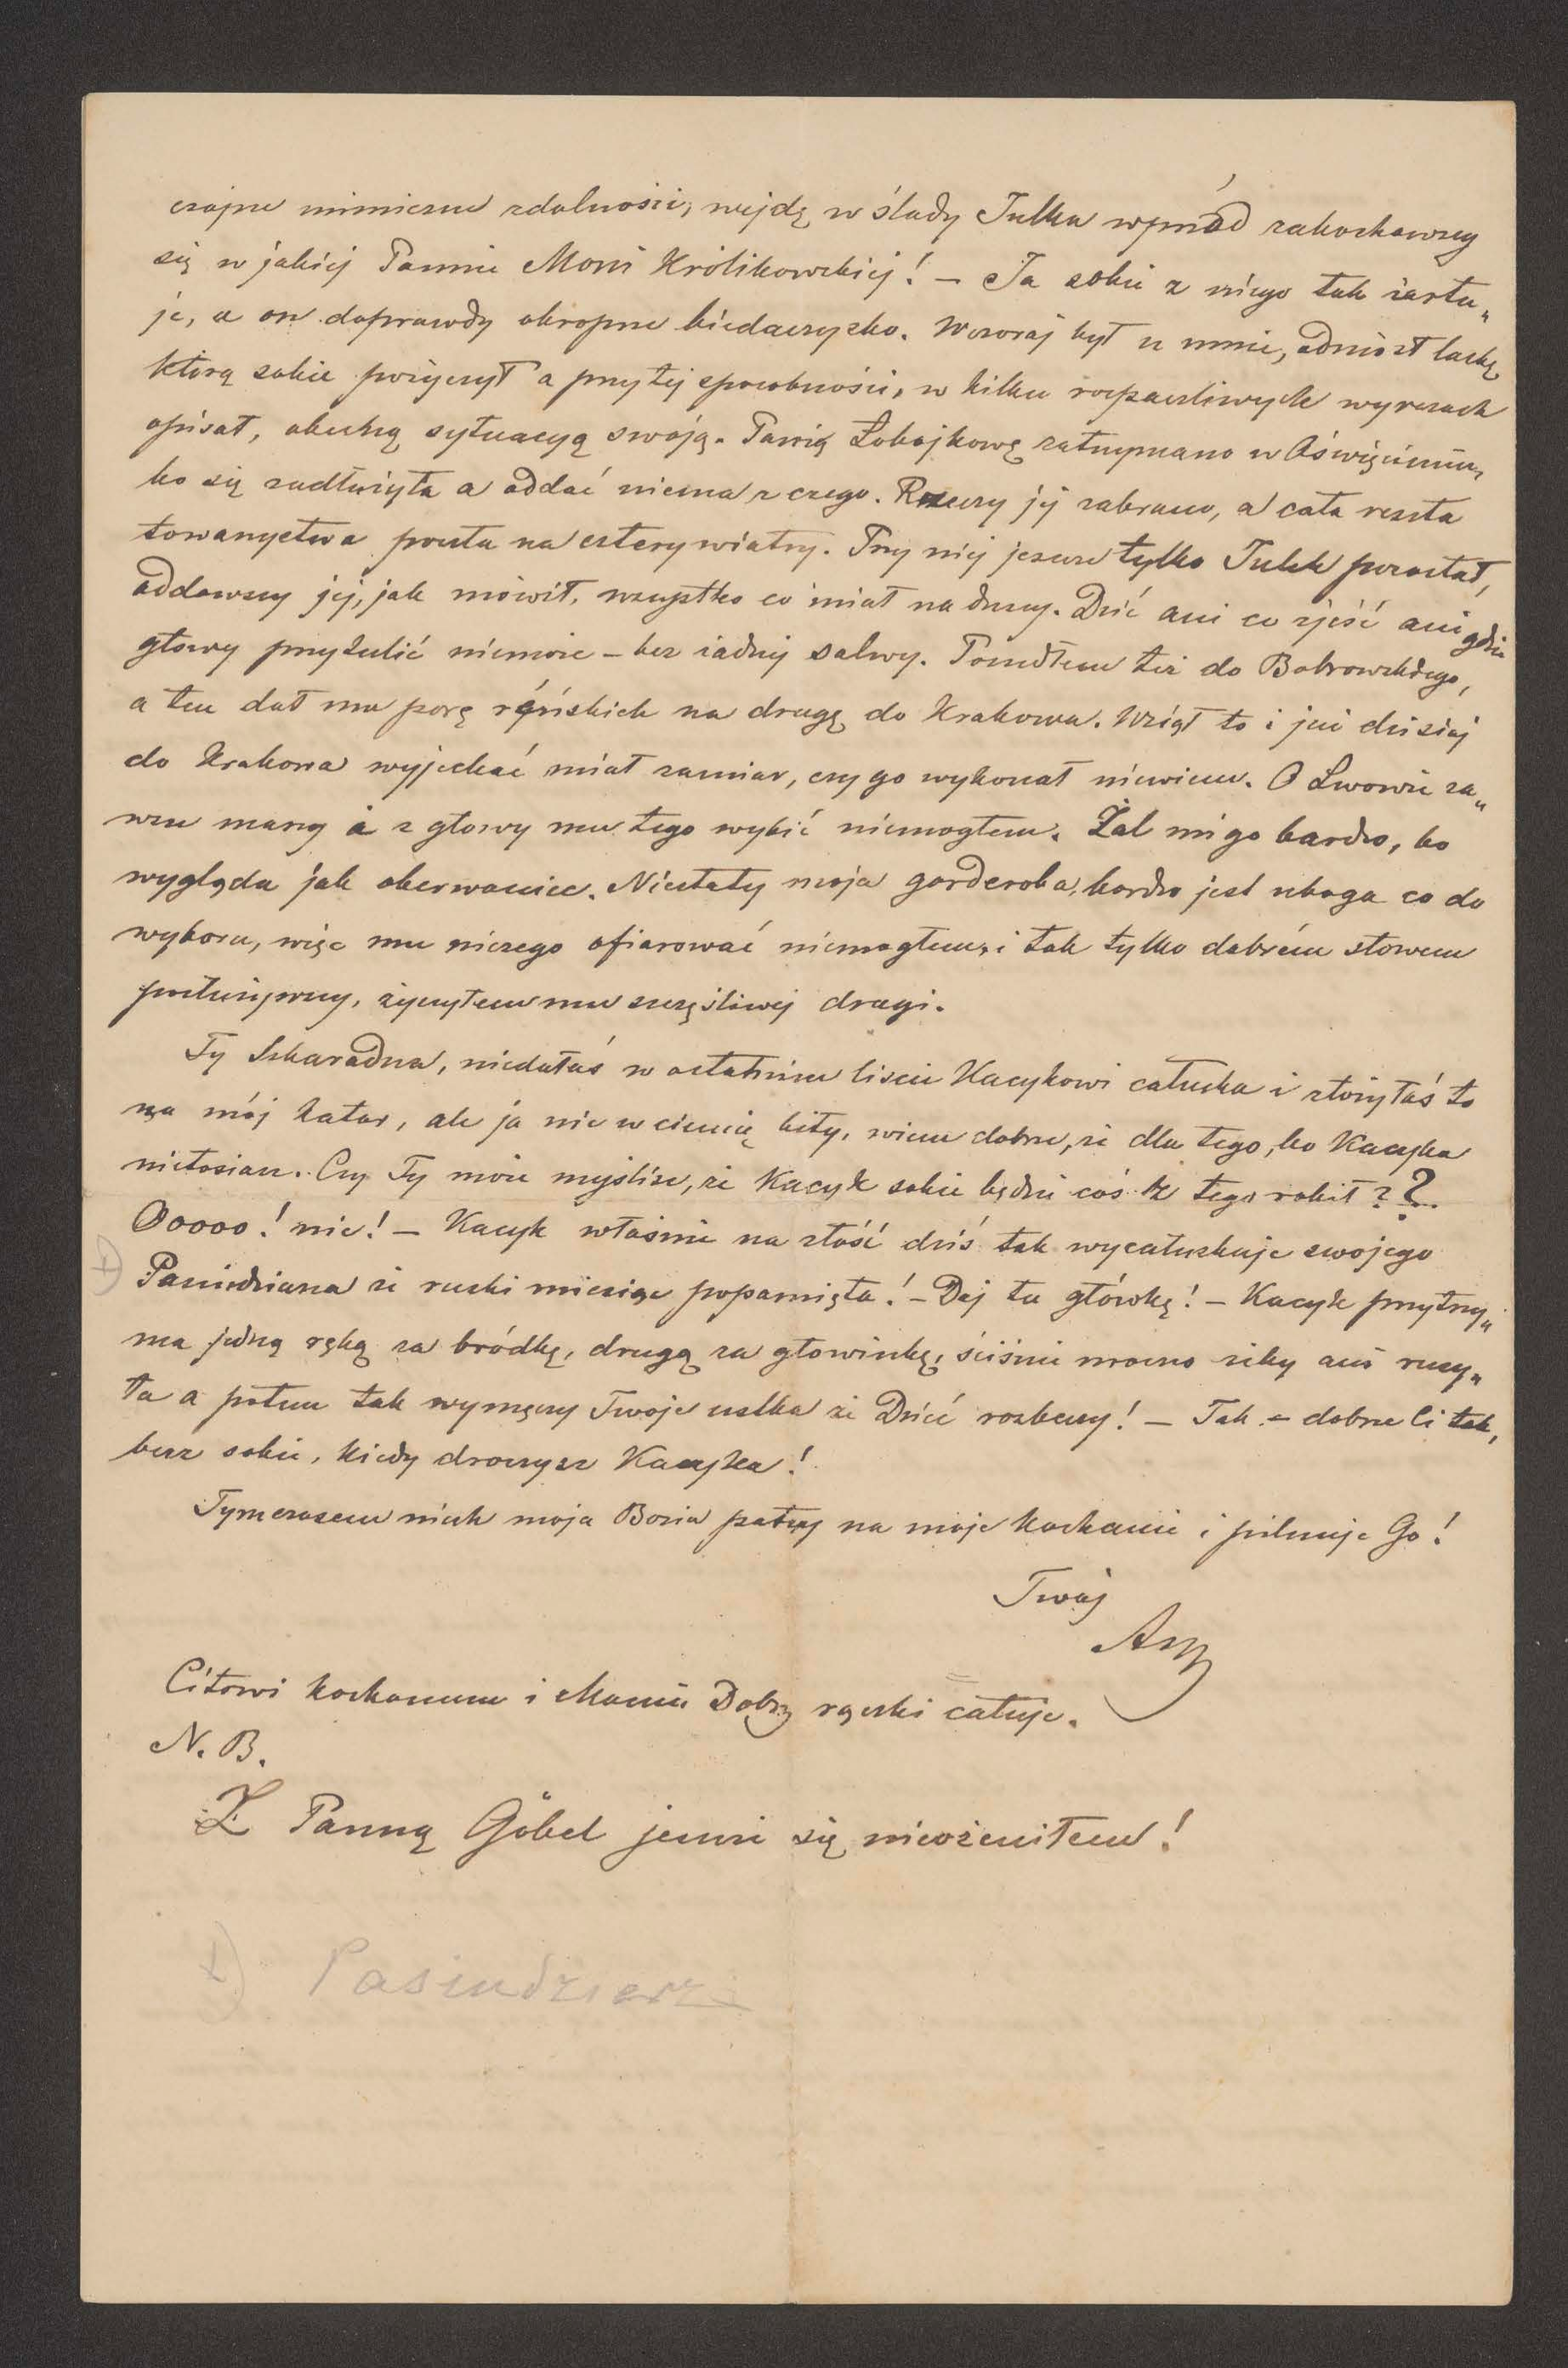 czajne mimiczne zdolności, wejdę w ślady Tulka wprzód zakochawszy
się w jakiej Pannie Moni Królikowskiej! – Ja sobie z niego tak żartu„
ję, a on doprawdy okropne biedaczysko. Wczoraj był u mnie, odniósł laskę,
którą sobie pożyczył a przy tej sposobności, w kilku rozpaczliwych wyrazach
opisał, obecną sytuacyą swoją. Panią Łobojkowę zatrzymano w Oświęcimiu,
bo się zadłużyła a oddać niema z czego. Rzeczy jej zabrano, a cała reszta
towarzystwa poszła na cztery wiatry. Przy niej jeszcze tylko Tulek pozostał,
oddawszy jej, jak mówił, wszystko co miał na duszy. Dziś ani co zjeść ani gdzie
głowy przytulić niemoże – bez żadnej salwy. Poszedłem też do Bobrowskiego,
a ten dał mu porę ryńskich na drogę do Krakowa. Wziął to i już dzisiaj
do Krakowa wyjechać miał zamiar, czy go wykonał niewiem. O Lwowie za„
wsze marzy i z głowy mu tego wybić niemogłem. Żal mi go bardzo, bo
wygląda jak oberwaniec. Niestety moja garderoba, bardzo jest uboga co do
wyboru, więc mu niczego ofiarować niemogłem, i tak tylko dobrém słowem
posłużywszy, życzyłem mu szczęśliwej drogi.
Ty Szkaradna, niedałaś w ostatnim liście Kacykowi całuska i złożyłaś to
na mój katar, ale ja nie w ciemię bity, wiem dobrze, że dla tego, bo Kacyka
niełosiasz. Czy Ty może myślisz, że Kacyk sobie będzie coś z tego robił??
Ooooo! nie! – Kacyk właśnie na złość dziś tak wycałuszkuje swojego
+) Pasiudziana że ruski miesiąc popamięta! – Daj tu główkę! – Kacyk przytrzy„
ma jedną ręką za bródkę, drugą za głowinkę, ściśnie mocno żeby ani ruszy„
ła a potem tak wymęczy Twoje ustka że Dzieć rozbeczy! – Tak – dobrze Ci tak,
becz sobie, kiedy droczysz Kacyka!
Tymczasem niech moja Bozia patrzy na moje kochanie i pilnuje Go!
Twój
Asz
Citowi kochanemu i Mamie Dobrz. rączki całuję.
N. B.
Z Panną Göbel jeszcze się nieożeniłem!
+) Pasiudzierz